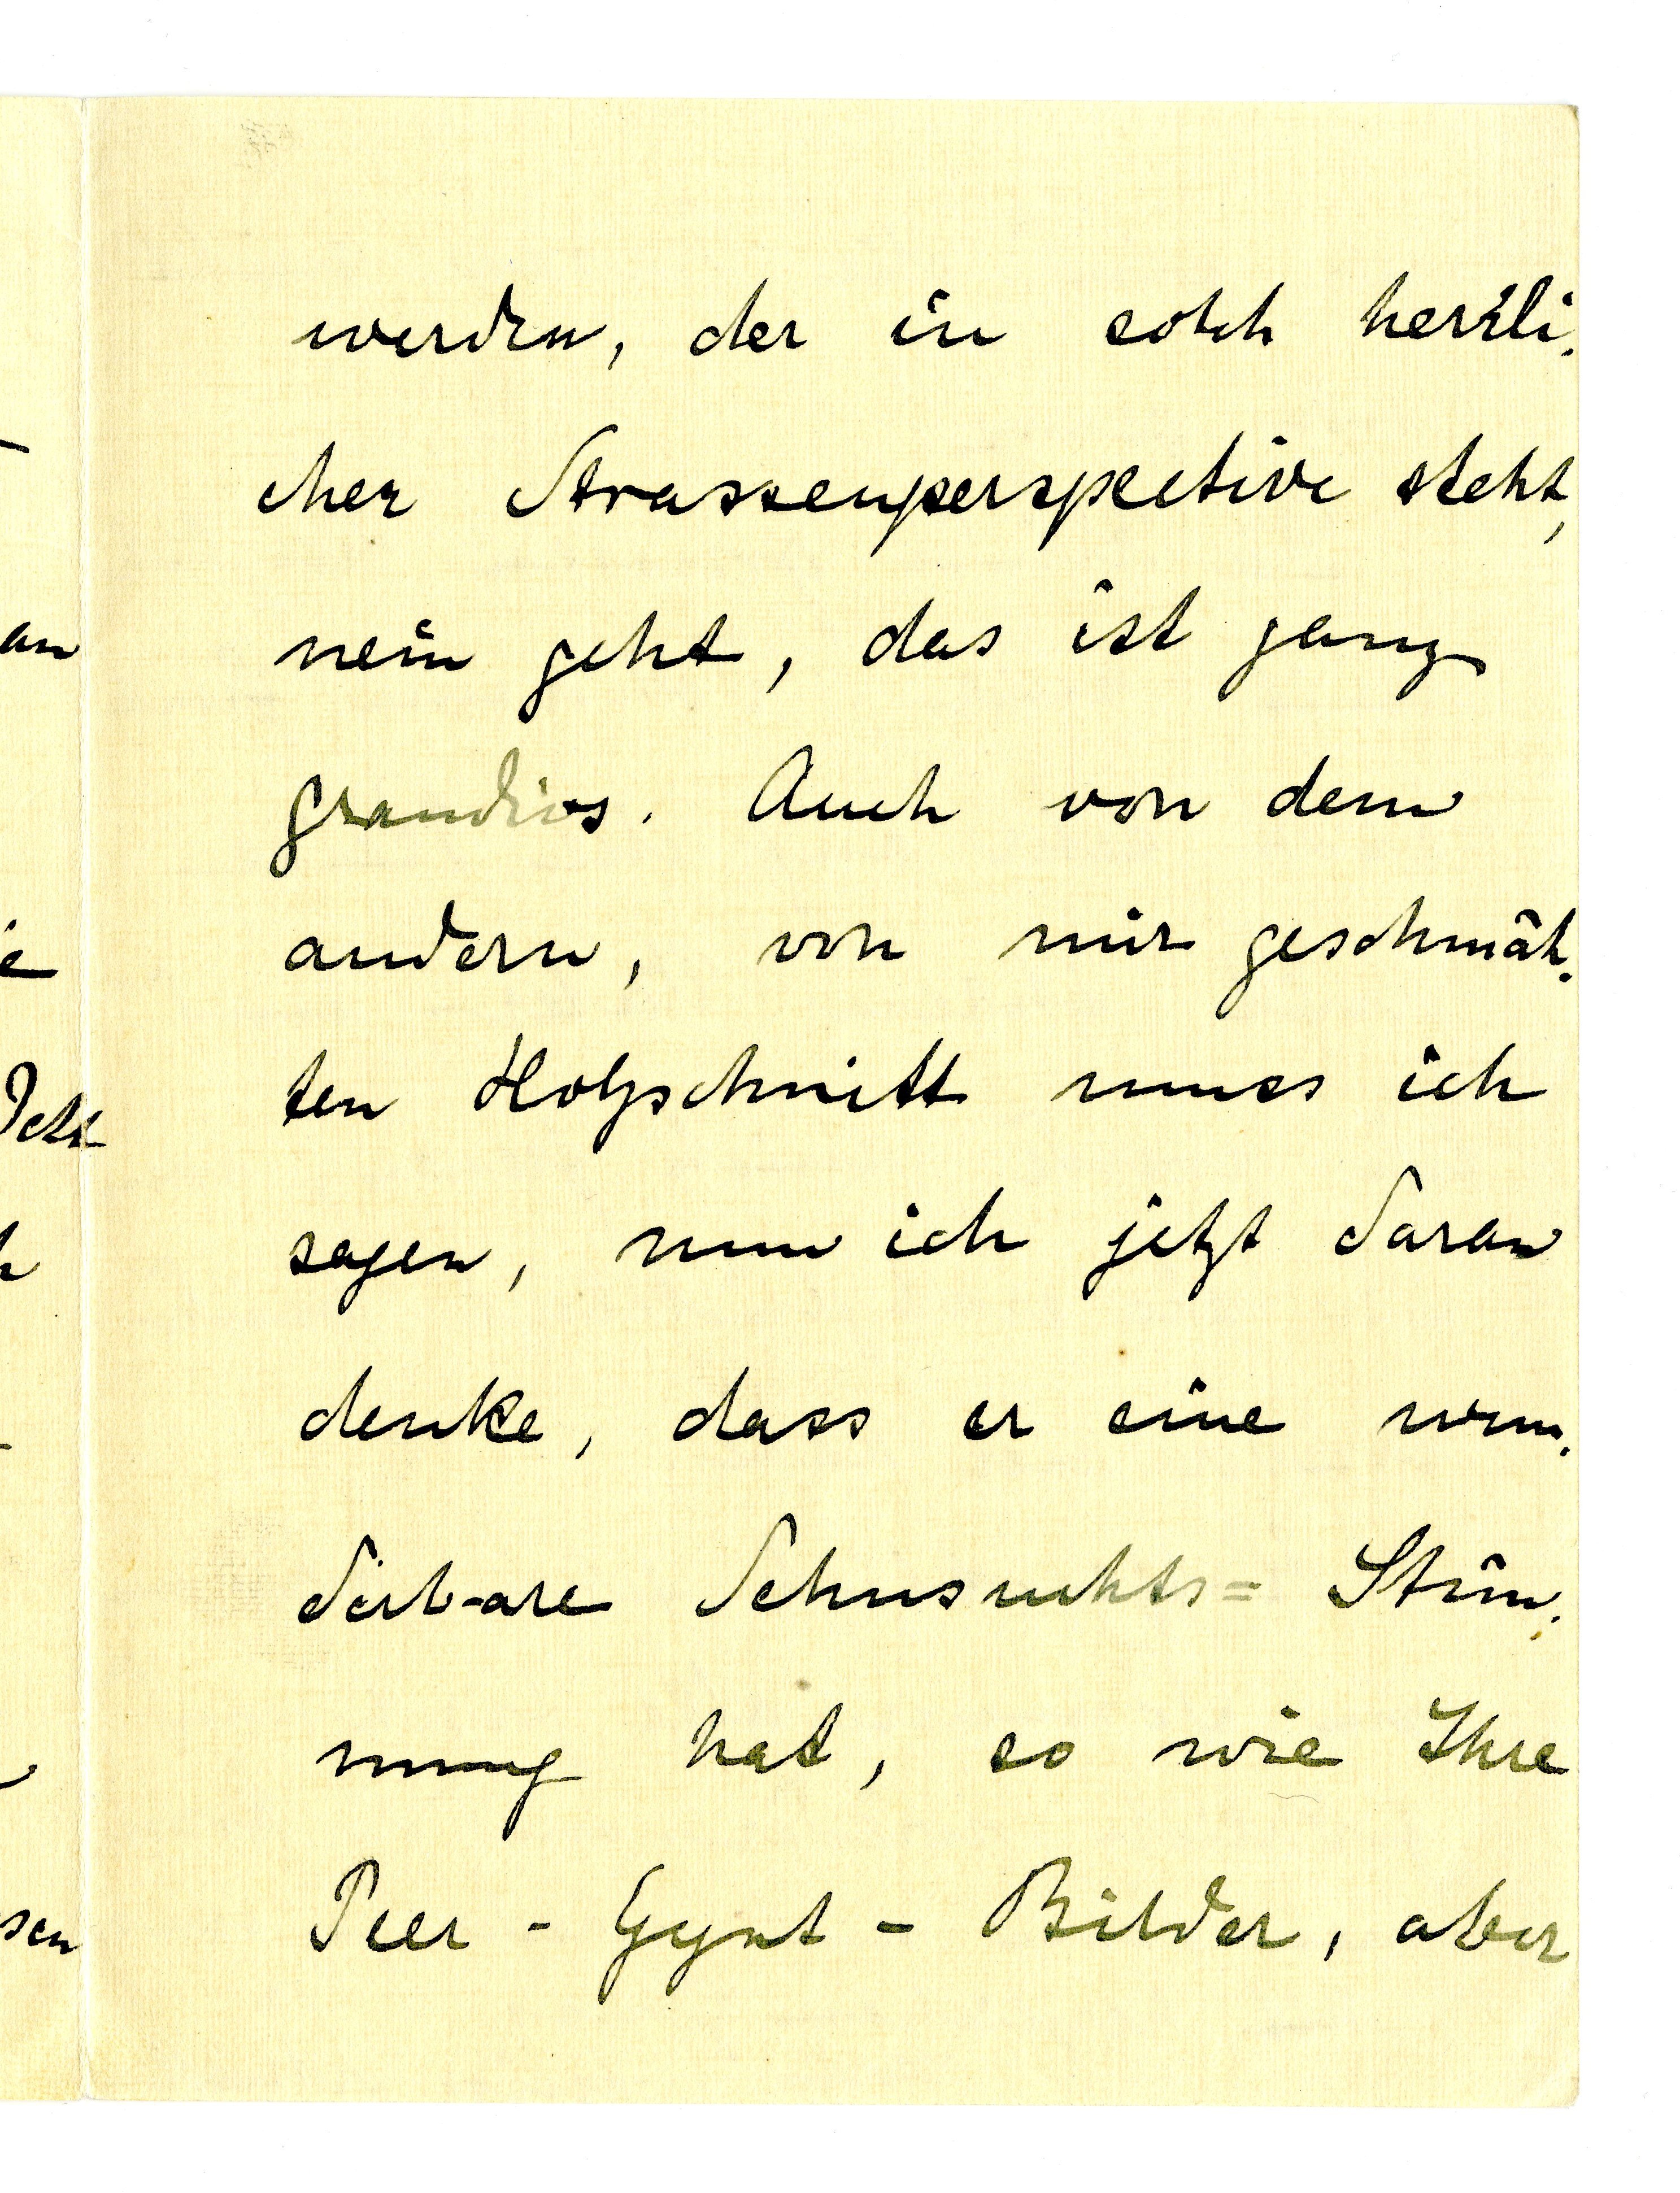 werden, der in solch herrli-
cher Strassenperspective steht,
nein geht, das ist ganz
grandios. Auch von dem
andern, von mir geschmäh-
ten Holzschnitt muss ich
sagen, nun ich jetzt daran
denke, dass er eine wun-
derbare Sehnsuchts= Stim-
mung hat, so wie Ihre
Peer - Gynt - Bilder, aber